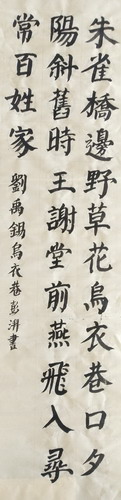 朱雀橋邊野草花烏衣巷口夕
陽斜舊時王謝堂前燕飛入尋
常百姓家
劉禹錫烏衣巷彭洲書